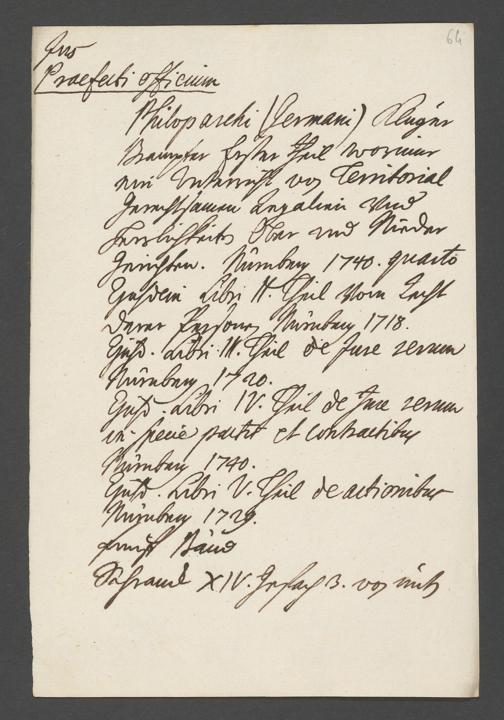 64
Jus
Praefecti officium
Philoparchi (Germani) kluger
Beampter Erster Theil worinn
ein Unterricht von Territorial
Gerechtsamen Regalien und
Herrlichkeiten Ober und Nieder
Gerichten. Nürnberg 1740. quarto
Ejusdem Libri II. Theil vom Recht
derer Personen Nürnberg 1718.
Ejusd. Libri III. Theil de Jure rerum
Nürnberg 1720.
Ejusd. Libri IV. Theil de Jure rerum
in specie pactis et contractibus
Nürnberg 1740.
Ejusd. Libri V. Theil de actionibus
Nürnberg 1729.
fünf Bänd
Schranck XIV. Gefach 3. von unten